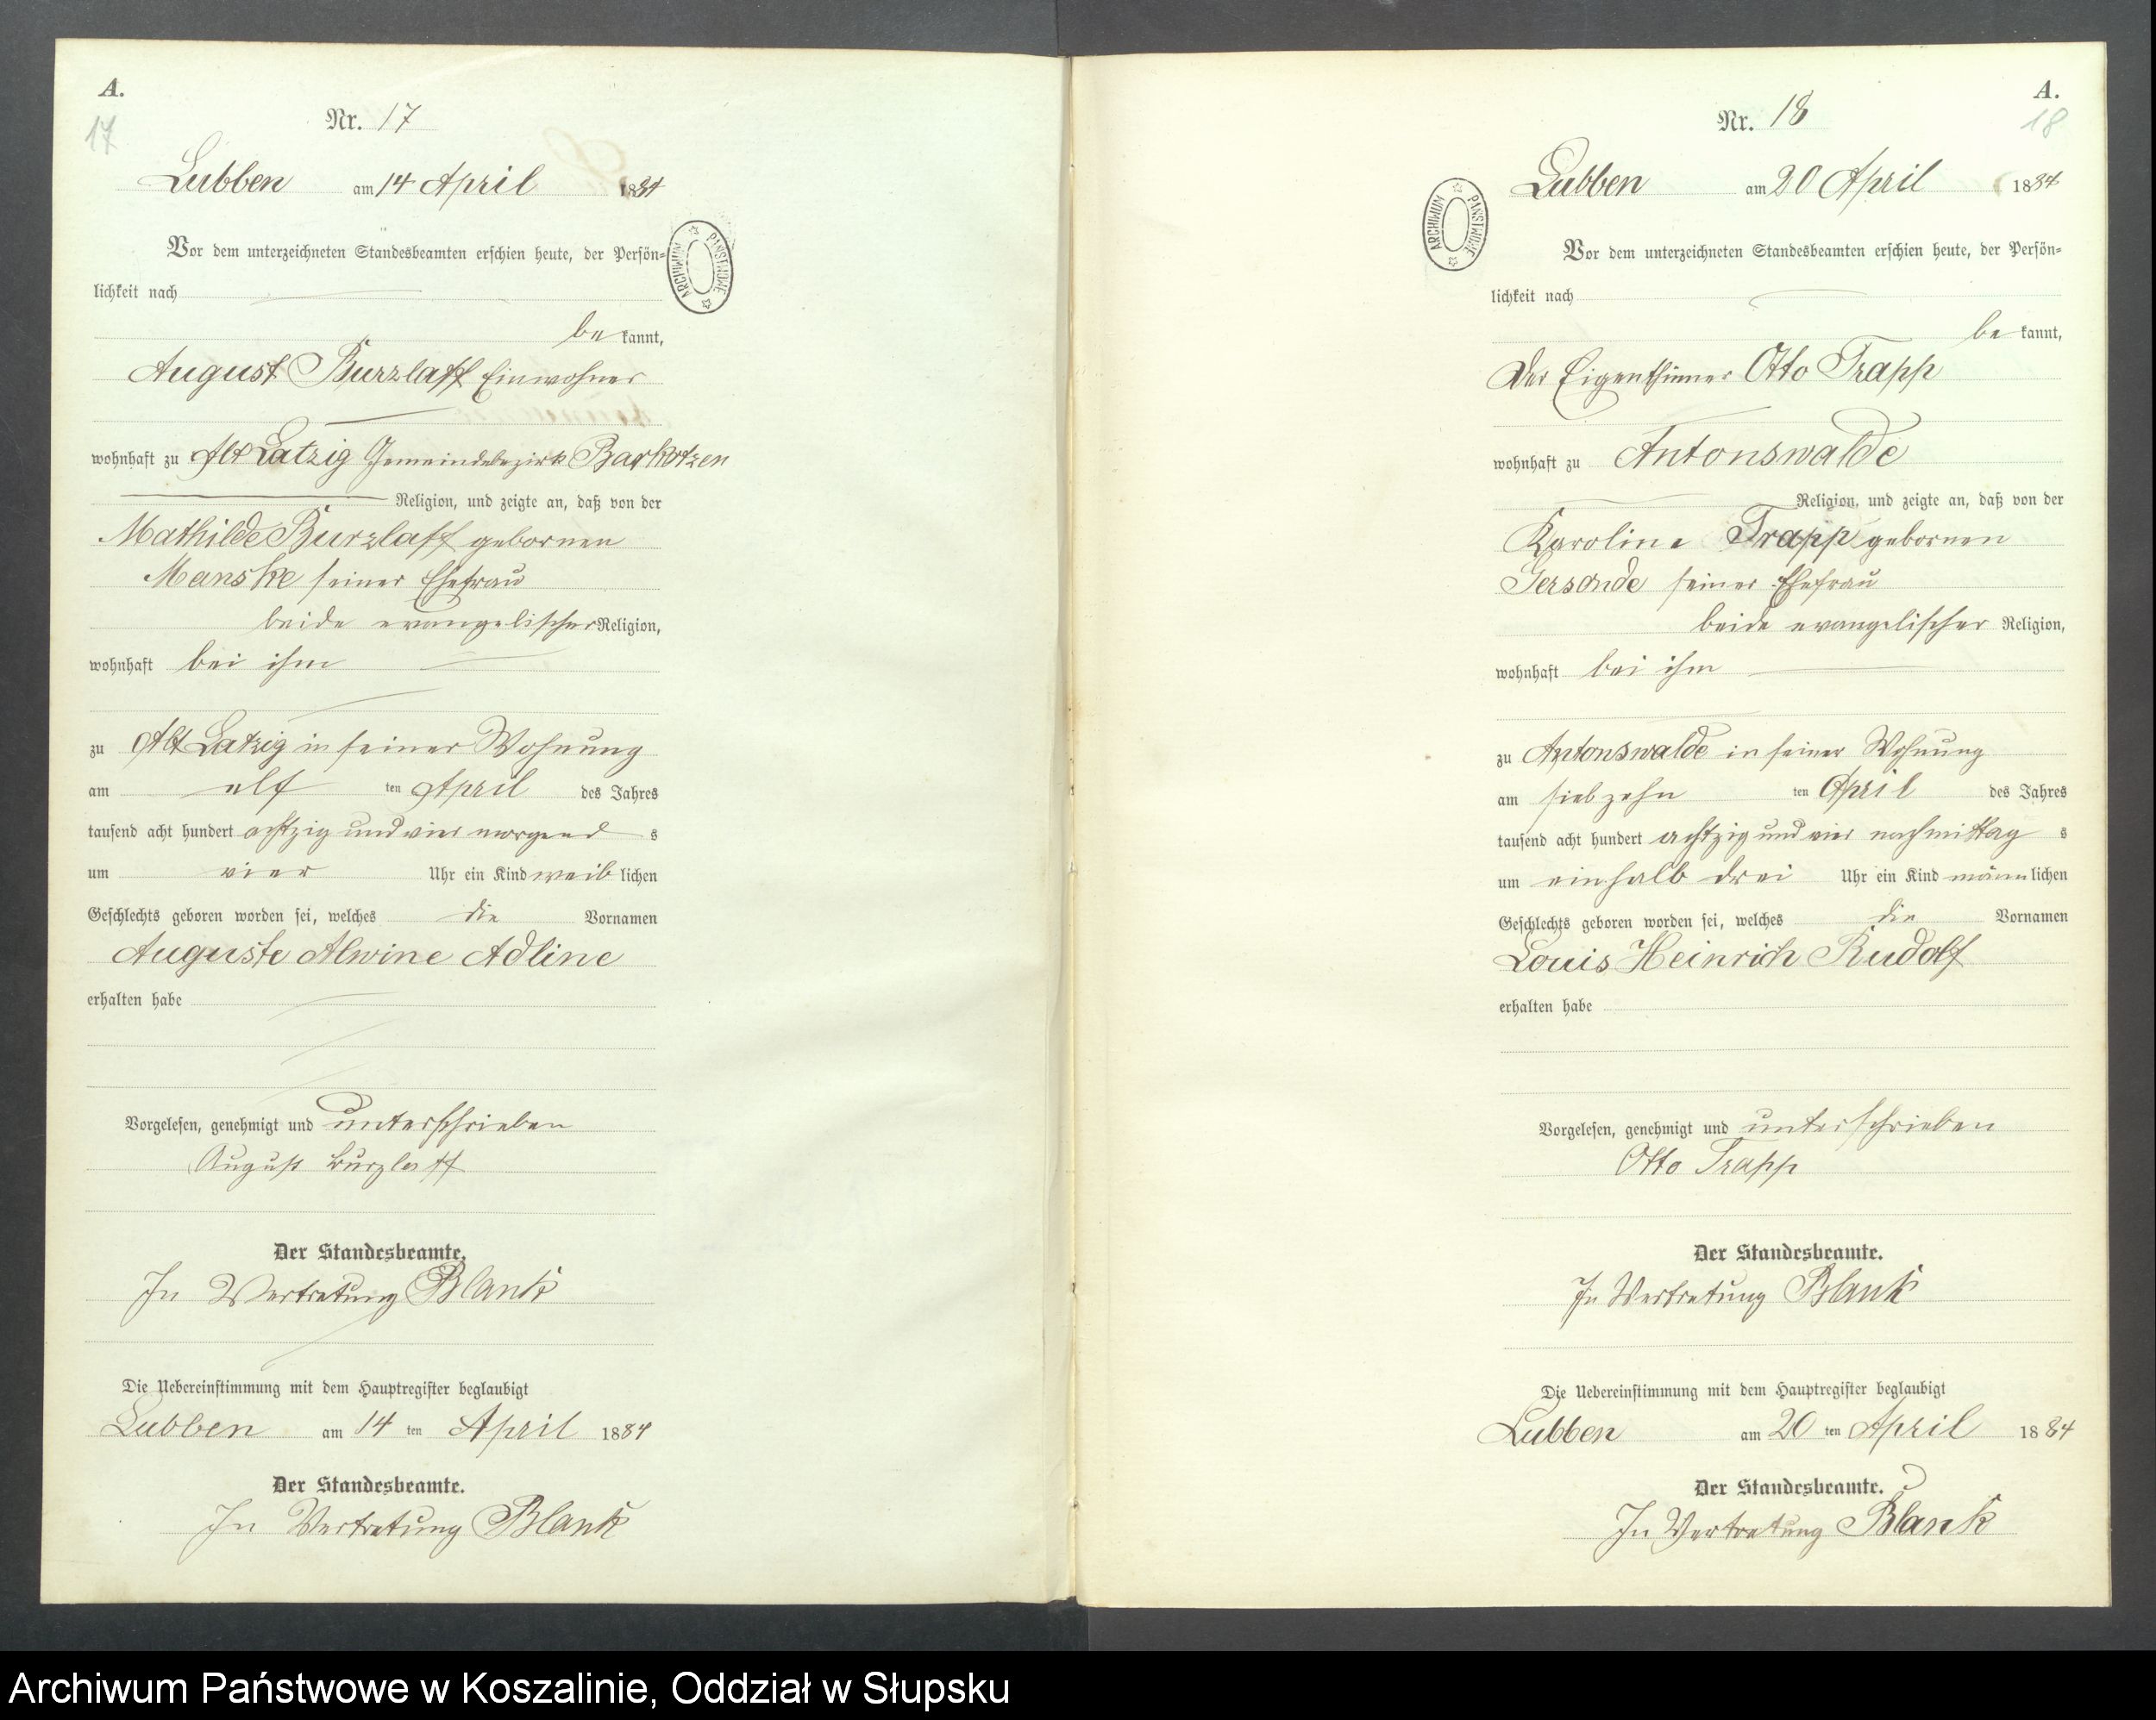 A.
17
Nr. 17
Lubben am 14 April 1884
Vor dem unterzeichneten Standesbeamten erschien heute, der Persön-
lichkeit nach
be kannt,
August Burzlaff Einwohner
wohnhaft zu Alt Latzig Gemeindebezirk Barkotzen
Religion, und zeigte an, daß von der
Mathilde Burzlaff gebornen
Manske seiner Ehefrau
beide evangelischer Religion,
wohnhaft bei ihm
zu Alt Latzig in seiner Wohnung
am elf ten April des Jahres
tausend acht hundert achtzig und vier morgend s
um vier Uhr ein Kind weib lichen
Geschlechts geboren worden sei, welches die Vornamen
Auguste Alwine Adline
erhalten habe
Vorgelesen, genehmigt und unterschrieben
August Burzlaff
Der Standesbeamte.
In Vertretung Blank
Die Uebereinstimmung mit dem Hauptregister beglaubigt
Lubben am 14 ten April 1884
Der Standesbeamte.
In Vertretung Blank
ARCHIWUM PAŃSTWOWE
A.
18
Nr. 18
Lubben am 20 April 1884
Vor dem unterzeichneten Standesbeamten erschien heute, der Persön-
lichkeit nach
be kannt,
Der Eigenthümer Otto Trapp
wohnhaft zu Antonswalde
Religion, und zeigte an, daß von der
Karoline Trapp gebornen
Gersonde seiner Ehefrau
beide evangelischer Religion,
wohnhaft bei ihm
zu Antonswalde in seiner Wohnung
am siebzehn ten April des Jahres
tausend acht hundert achtzig und vier nachmittag s
um einhalb drei Uhr ein Kind männ lichen
Geschlechts geboren worden sei, welches die Vornamen
Louis Heinrich Rudolf
erhalten habe
Vorgelesen, genehmigt und unterschrieben
Otto Trapp
Der Standesbeamte.
In Vertretung Blank
Die Uebereinstimmung mit dem Hauptregister beglaubigt
Lubben am 20 ten April 1884
Der Standesbeamte.
In Vertretung Blank
ARCHIWUM PAŃSTWOWE
Archiwum Państwowe w Koszalinie, Oddział w Słupsku